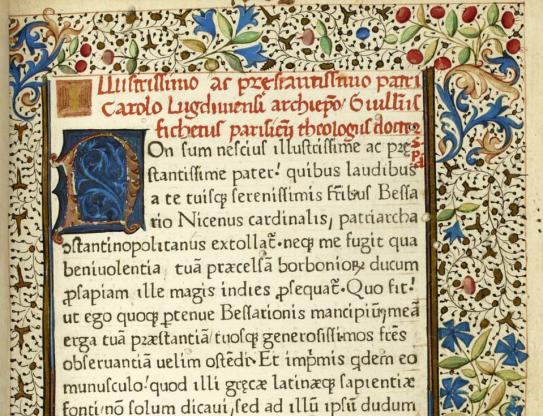 Illustrissimo ac præstantissimo patri
Carolo Lugdunensi archiepo/ Guillꝰs
fichetus parisieñ theologus doctor
S P d
NOn sum nescius illustrissime ac præ
stantissime pater! quibus laudibus
a te tuisqꝫ serenissimis fribus Bessa
rio Nicenus cardinalis, patriarcha
ↄstantinopolitanus extollat̃. neqꝫ me fugit qua
beniuolentia, tuã præcelsã borbonioꝝ ducum
ꝓsapiam ille magis indies ꝓsequat̃. Quo fit!
ut ego quoqꝫ ꝑtenue Bessarionis mancipiũ, meã
erga tuã præstantiã/ tuosqꝫ generosissimos frẽs
obseruantiã uelim ostẽdi. Et imp̃mis qdem eo
munusculo! quod illi gręcæ latinæqꝫ sapientiæ
fonti/ nõ solum dicaui, sed ad illũ ipsũ dudum